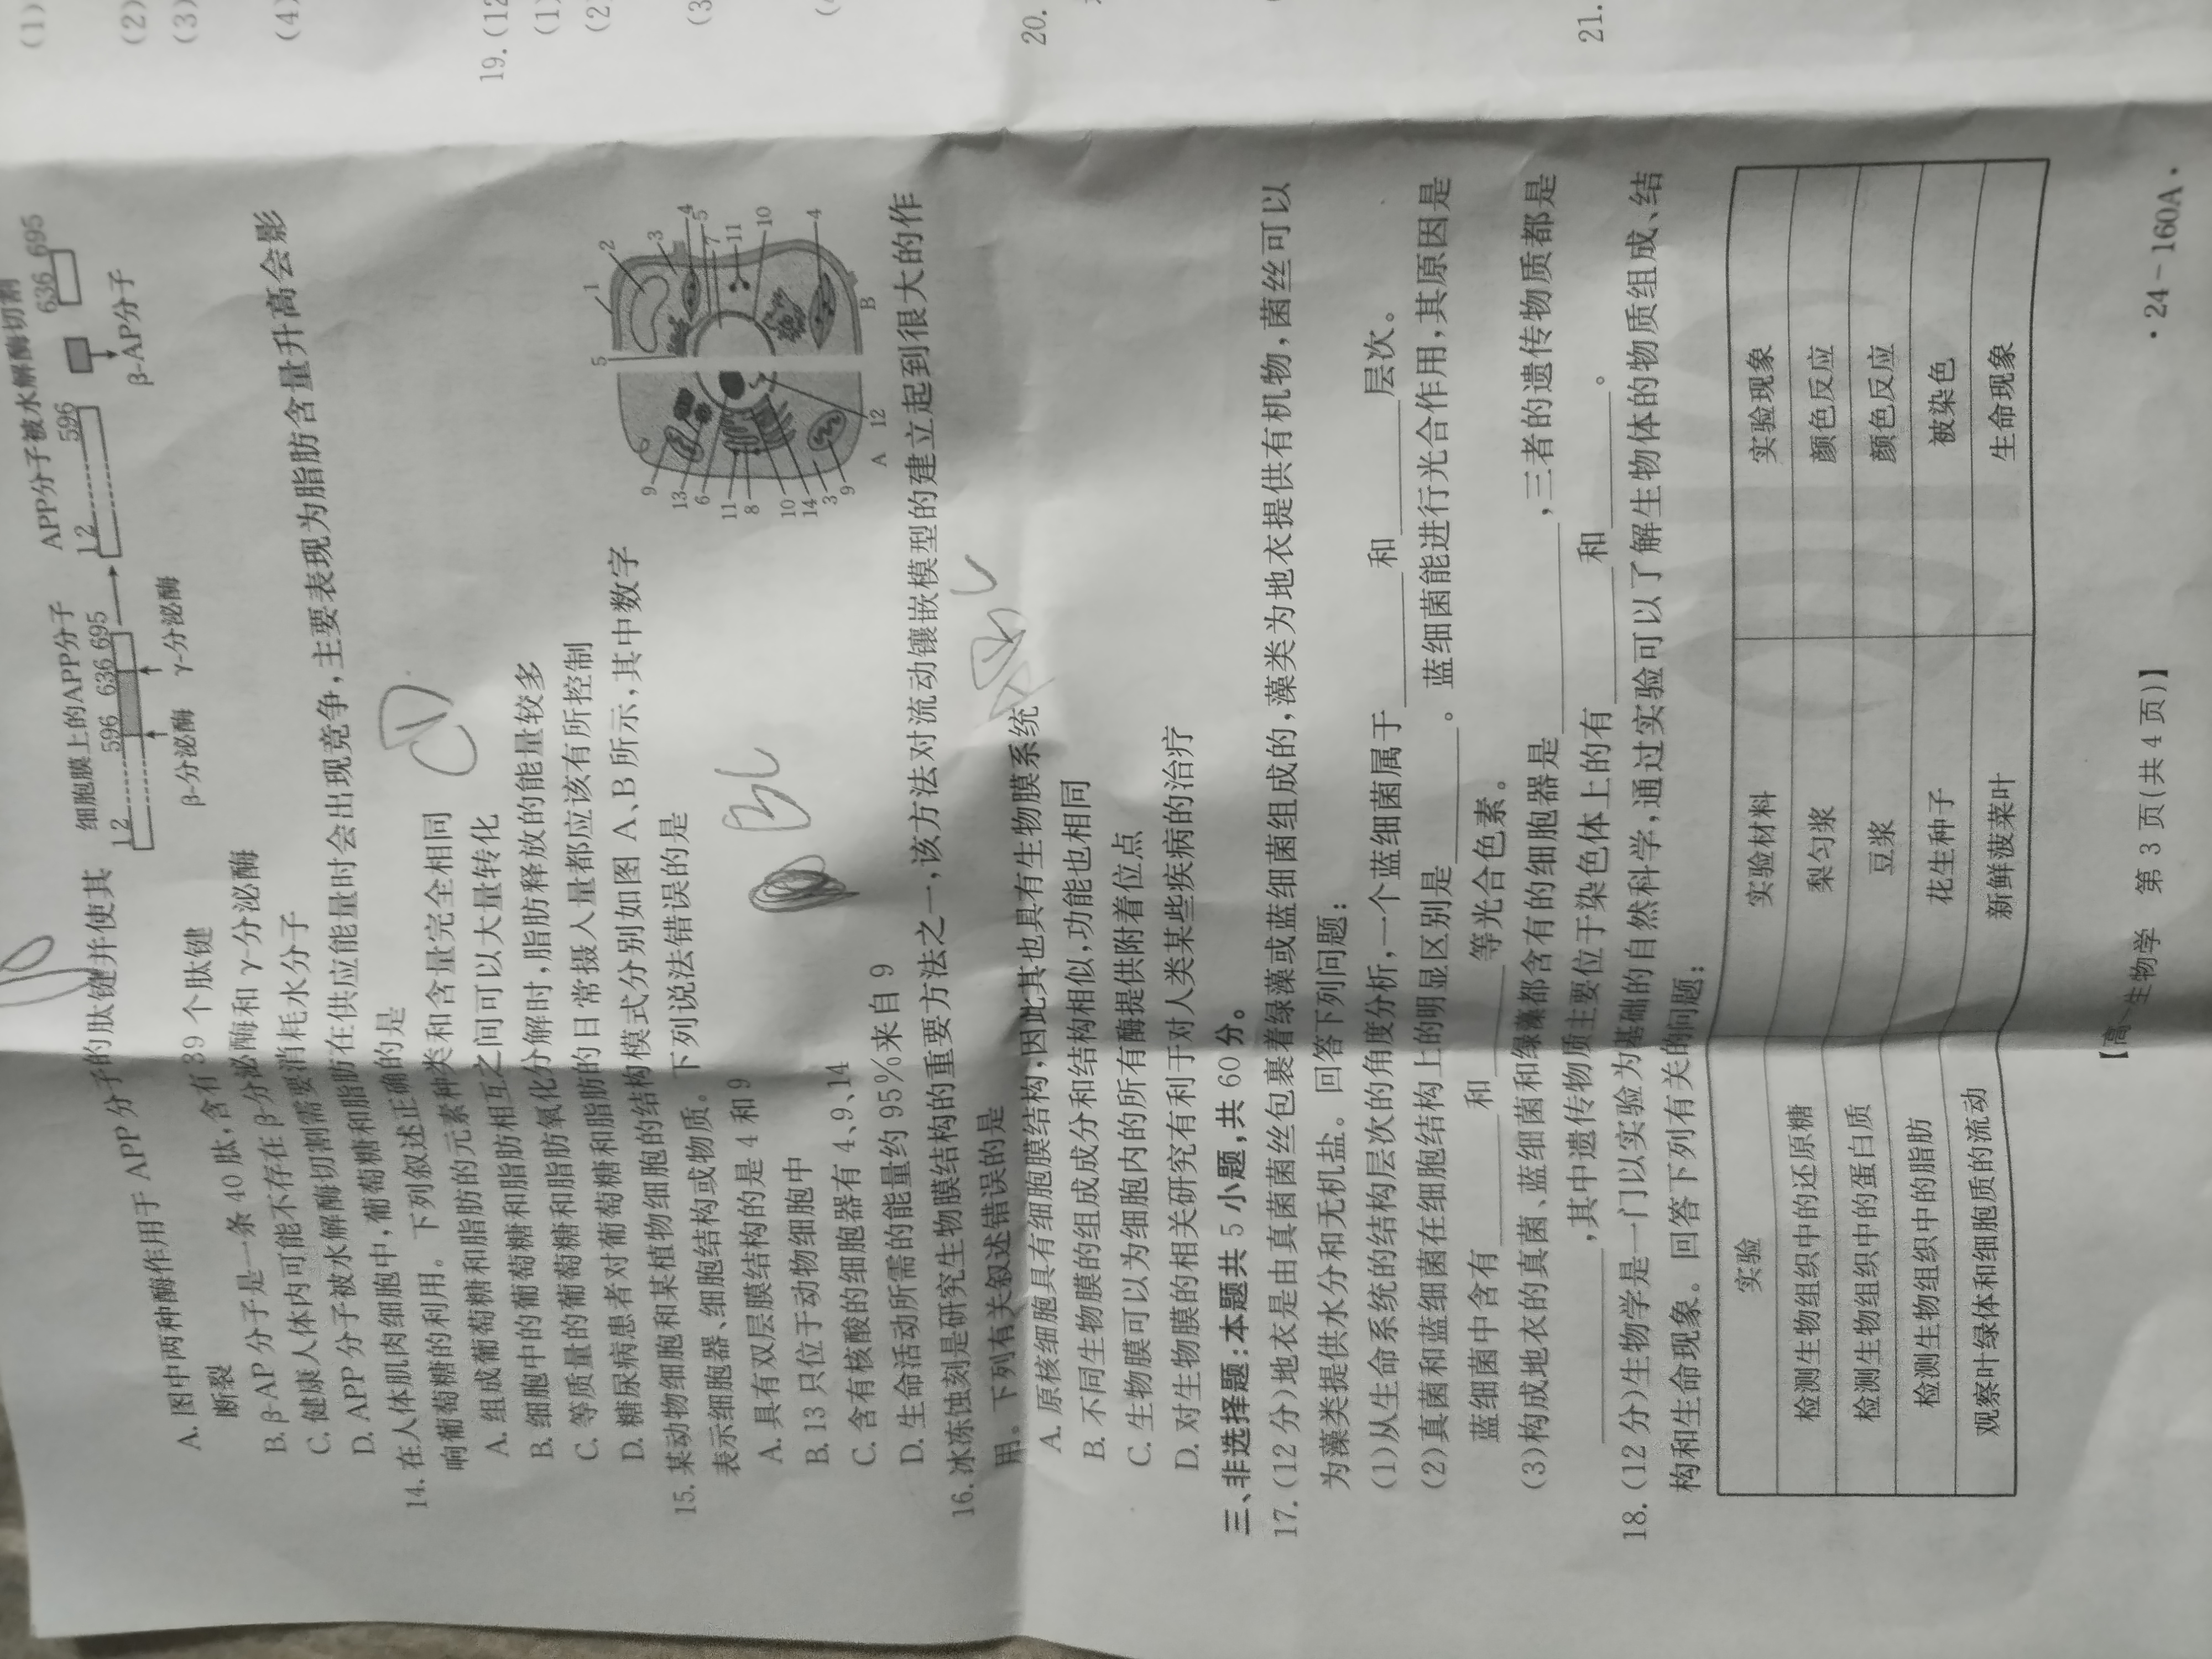 A. 图中两种酶作用于 APP 分子的肽键并使其
断裂
B. β-AP 分子是一条 40 肽,含有 39 个肽键
C. 健康人体内可能不存在 β-分泌酶和 γ-分泌酶
D. APP 分子被水解酶切割需要消耗水分子
细胞膜上的APP分子
1 2 596 636 695
β-分泌酶 γ-分泌酶
APP分子被水解酶切割
1 2 596 636 695
β-AP分子
14. 在人体肌肉细胞中,葡萄糖和脂肪在供应能量时会出现竞争,主要表现为脂肪含量升高会影
响葡萄糖的利用。下列叙述正确的是
A. 组成葡萄糖和脂肪的元素种类和含量完全相同
B. 细胞中的葡萄糖和脂肪相互之间可以大量转化
C. 等质量的葡萄糖和脂肪氧化分解时,脂肪释放的能量较多
D. 糖尿病患者对葡萄糖和脂肪的日常摄入量都应该有所控制
15. 某动物细胞和某植物细胞的结构模式分别如图 A、B 所示,其中数字
表示细胞器、细胞结构或物质。下列说法错误的是
A. 具有双层膜结构的是 4 和 9
B. 13 只位于动物细胞中
C. 含有核酸的细胞器有 4、9、14
D. 生命活动所需的能量约 95%来自 9
5 1 2 3 4 5 7 11 10 4
9 13 6 11 8 10 14 3 9
A 12 B
16. 冰冻蚀刻是研究生物膜结构的重要方法之一,该方法对流动镶嵌模型的建立起到很大的作
用。下列有关叙述错误的是
A. 原核细胞具有细胞膜结构,因此其也具有生物膜系统
B. 不同生物膜的组成成分和结构相似,功能也相同
C. 生物膜可以为细胞内的所有酶提供附着位点
D. 对生物膜的相关研究有利于对人类某些疾病的治疗
三、非选择题:本题共 5 小题,共 60 分。
17. (12 分)地衣是由真菌菌丝包裹着绿藻或蓝细菌组成的,藻类为地衣提供有机物,菌丝可以
为藻类提供水分和无机盐。回答下列问题:
(1)从生命系统的结构层次的角度分析,一个蓝细菌属于______和______层次。
(2)真菌和蓝细菌在细胞结构上的明显区别是______。蓝细菌能进行光合作用,其原因是
蓝细菌中含有______和______等光合色素。
(3)构成地衣的真菌、蓝细菌和绿藻都含有的细胞器是______,三者的遗传物质都是
______,其中遗传物质主要位于染色体上的有______和______。
18. (12 分)生物学是一门以实验为基础的自然科学,通过实验可以了解生物体的物质组成、结
构和生命现象。回答下列有关的问题:
实验 实验材料 实验现象
检测生物组织中的还原糖 梨匀浆 颜色反应
检测生物组织中的蛋白质 豆浆 颜色反应
检测生物组织中的脂肪 花生种子 被染色
观察叶绿体和细胞质的流动 新鲜菠菜叶 生命现象
【高一生物学 第 3 页(共 4 页)】
·24-160A·
(1)
(2)
(3)
(4)
19. (12
(1)
(2
(3
20.
21.